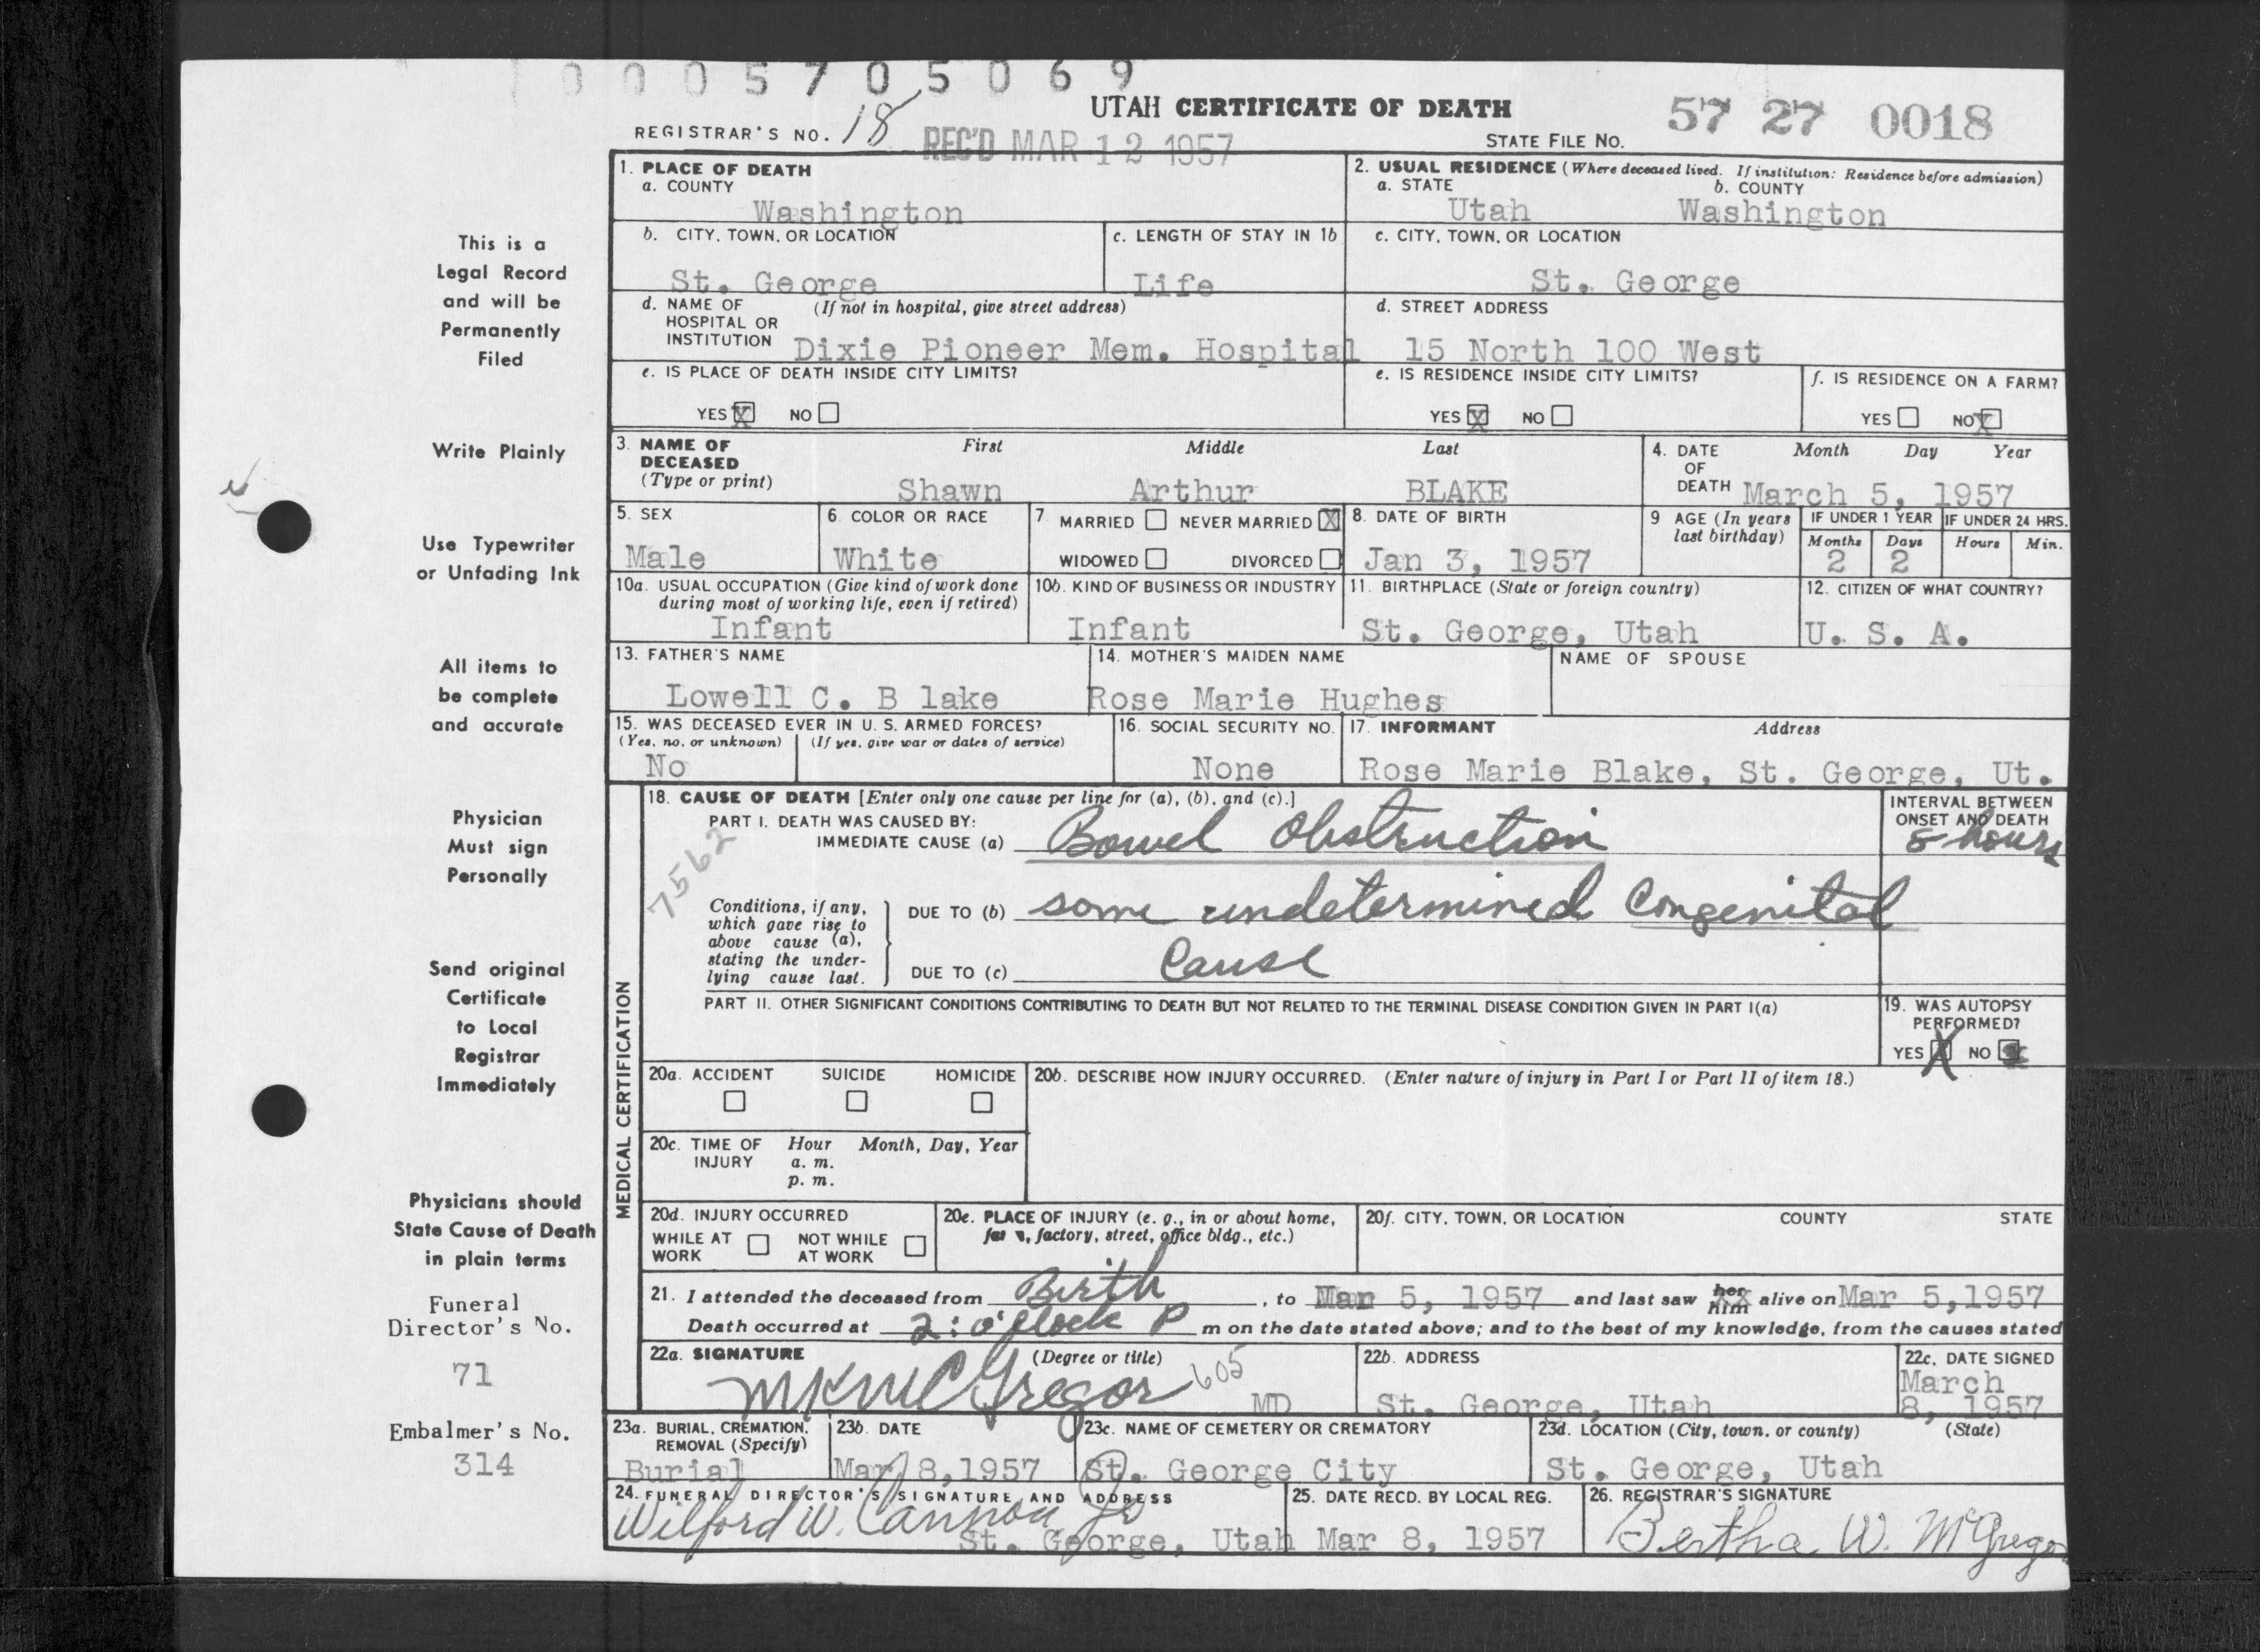 0005705069
UTAH CERTIFICATE OF DEATH
57 27 0018
REGISTRAR'S NO. 18
REC'D MAR 12 1957
STATE FILE NO.
1. PLACE OF DEATH
a. COUNTY
Washington
2. USUAL RESIDENCE (Where deceased lived. If institution: Residence before admission)
a. STATE b. COUNTY
Utah Washington
b. CITY, TOWN, OR LOCATION
St. George
c. LENGTH OF STAY IN 1b
Life
c. CITY, TOWN, OR LOCATION
St. George
d. NAME OF (If not in hospital, give street address)
HOSPITAL OR
INSTITUTION Dixie Pioneer Mem. Hospital
d. STREET ADDRESS
15 North 100 West
e. IS PLACE OF DEATH INSIDE CITY LIMITS?
YES X NO
e. IS RESIDENCE INSIDE CITY LIMITS?
YES X NO
f. IS RESIDENCE ON A FARM?
YES NO X
3. NAME OF First Middle Last
DECEASED
(Type or print) Shawn Arthur BLAKE
4. DATE Month Day Year
OF
DEATH March 5, 1957
5. SEX
Male
6. COLOR OR RACE
White
7. MARRIED NEVER MARRIED X
WIDOWED DIVORCED
8. DATE OF BIRTH
Jan 3, 1957
9 AGE (In years
last birthday)
IF UNDER 1 YEAR
Months Days
2 2
IF UNDER 24 HRS.
Hours Min.
10a. USUAL OCCUPATION (Give kind of work done
during most of working life, even if retired)
Infant
10b. KIND OF BUSINESS OR INDUSTRY
Infant
11. BIRTHPLACE (State or foreign country)
St. George, Utah
12. CITIZEN OF WHAT COUNTRY?
U. S. A.
13. FATHER'S NAME
Lowell C. B lake
14. MOTHER'S MAIDEN NAME
Rose Marie Hughes
NAME OF SPOUSE
15. WAS DECEASED EVER IN U. S. ARMED FORCES?
(Yes, no, or unknown) (If yes, give war or dates of service)
No
16. SOCIAL SECURITY NO.
None
17. INFORMANT Address
Rose Marie Blake, St. George, Ut.
MEDICAL CERTIFICATION
18. CAUSE OF DEATH [Enter only one cause per line for (a), (b), and (c).]
PART I. DEATH WAS CAUSED BY:
IMMEDIATE CAUSE (a) Bowel Obstruction
INTERVAL BETWEEN
ONSET AND DEATH
8 hours
7562
Conditions, if any,
which gave rise to
above cause (a),
stating the under-
lying cause last.
DUE TO (b) some undetermined Congenital
DUE TO (c) Cause
PART II. OTHER SIGNIFICANT CONDITIONS CONTRIBUTING TO DEATH BUT NOT RELATED TO THE TERMINAL DISEASE CONDITION GIVEN IN PART I(a)
19. WAS AUTOPSY
PERFORMED?
YES X NO
20a. ACCIDENT SUICIDE HOMICIDE
20b. DESCRIBE HOW INJURY OCCURRED. (Enter nature of injury in Part I or Part II of item 18.)
20c. TIME OF Hour Month, Day, Year
INJURY a. m.
p. m.
20d. INJURY OCCURRED
WHILE AT NOT WHILE
WORK AT WORK
20e. PLACE OF INJURY (e. g., in or about home,
factory, street, office bldg., etc.)
20f. CITY, TOWN, OR LOCATION COUNTY STATE
21. I attended the deceased from Birth, to Mar 5, 1957 and last saw her him alive on Mar 5, 1957
Death occurred at 2: o'clock P m on the date stated above; and to the best of my knowledge, from the causes stated
22a. SIGNATURE (Degree or title)
MK McGregor 605 MD
22b. ADDRESS
St. George, Utah
22c. DATE SIGNED
March
8, 1957
23a. BURIAL, CREMATION,
REMOVAL (Specify)
Burial
23b. DATE
Mar 8, 1957
23c. NAME OF CEMETERY OR CREMATORY
St. George City
23d. LOCATION (City, town, or county) (State)
St. George, Utah
24. FUNERAL DIRECTOR'S SIGNATURE AND ADDRESS
Wilford W. Cannon Jr
St. George, Utah
25. DATE RECD. BY LOCAL REG.
Mar 8, 1957
26. REGISTRAR'S SIGNATURE
Bertha W. McGregor
This is a
Legal Record
and will be
Permanently
Filed
Write Plainly
Use Typewriter
or Unfading Ink
All items to
be complete
and accurate
Physician
Must sign
Personally
Send original
Certificate
to Local
Registrar
Immediately
Physicians should
State Cause of Death
in plain terms
Funeral
Director's No.
71
Embalmer's No.
314